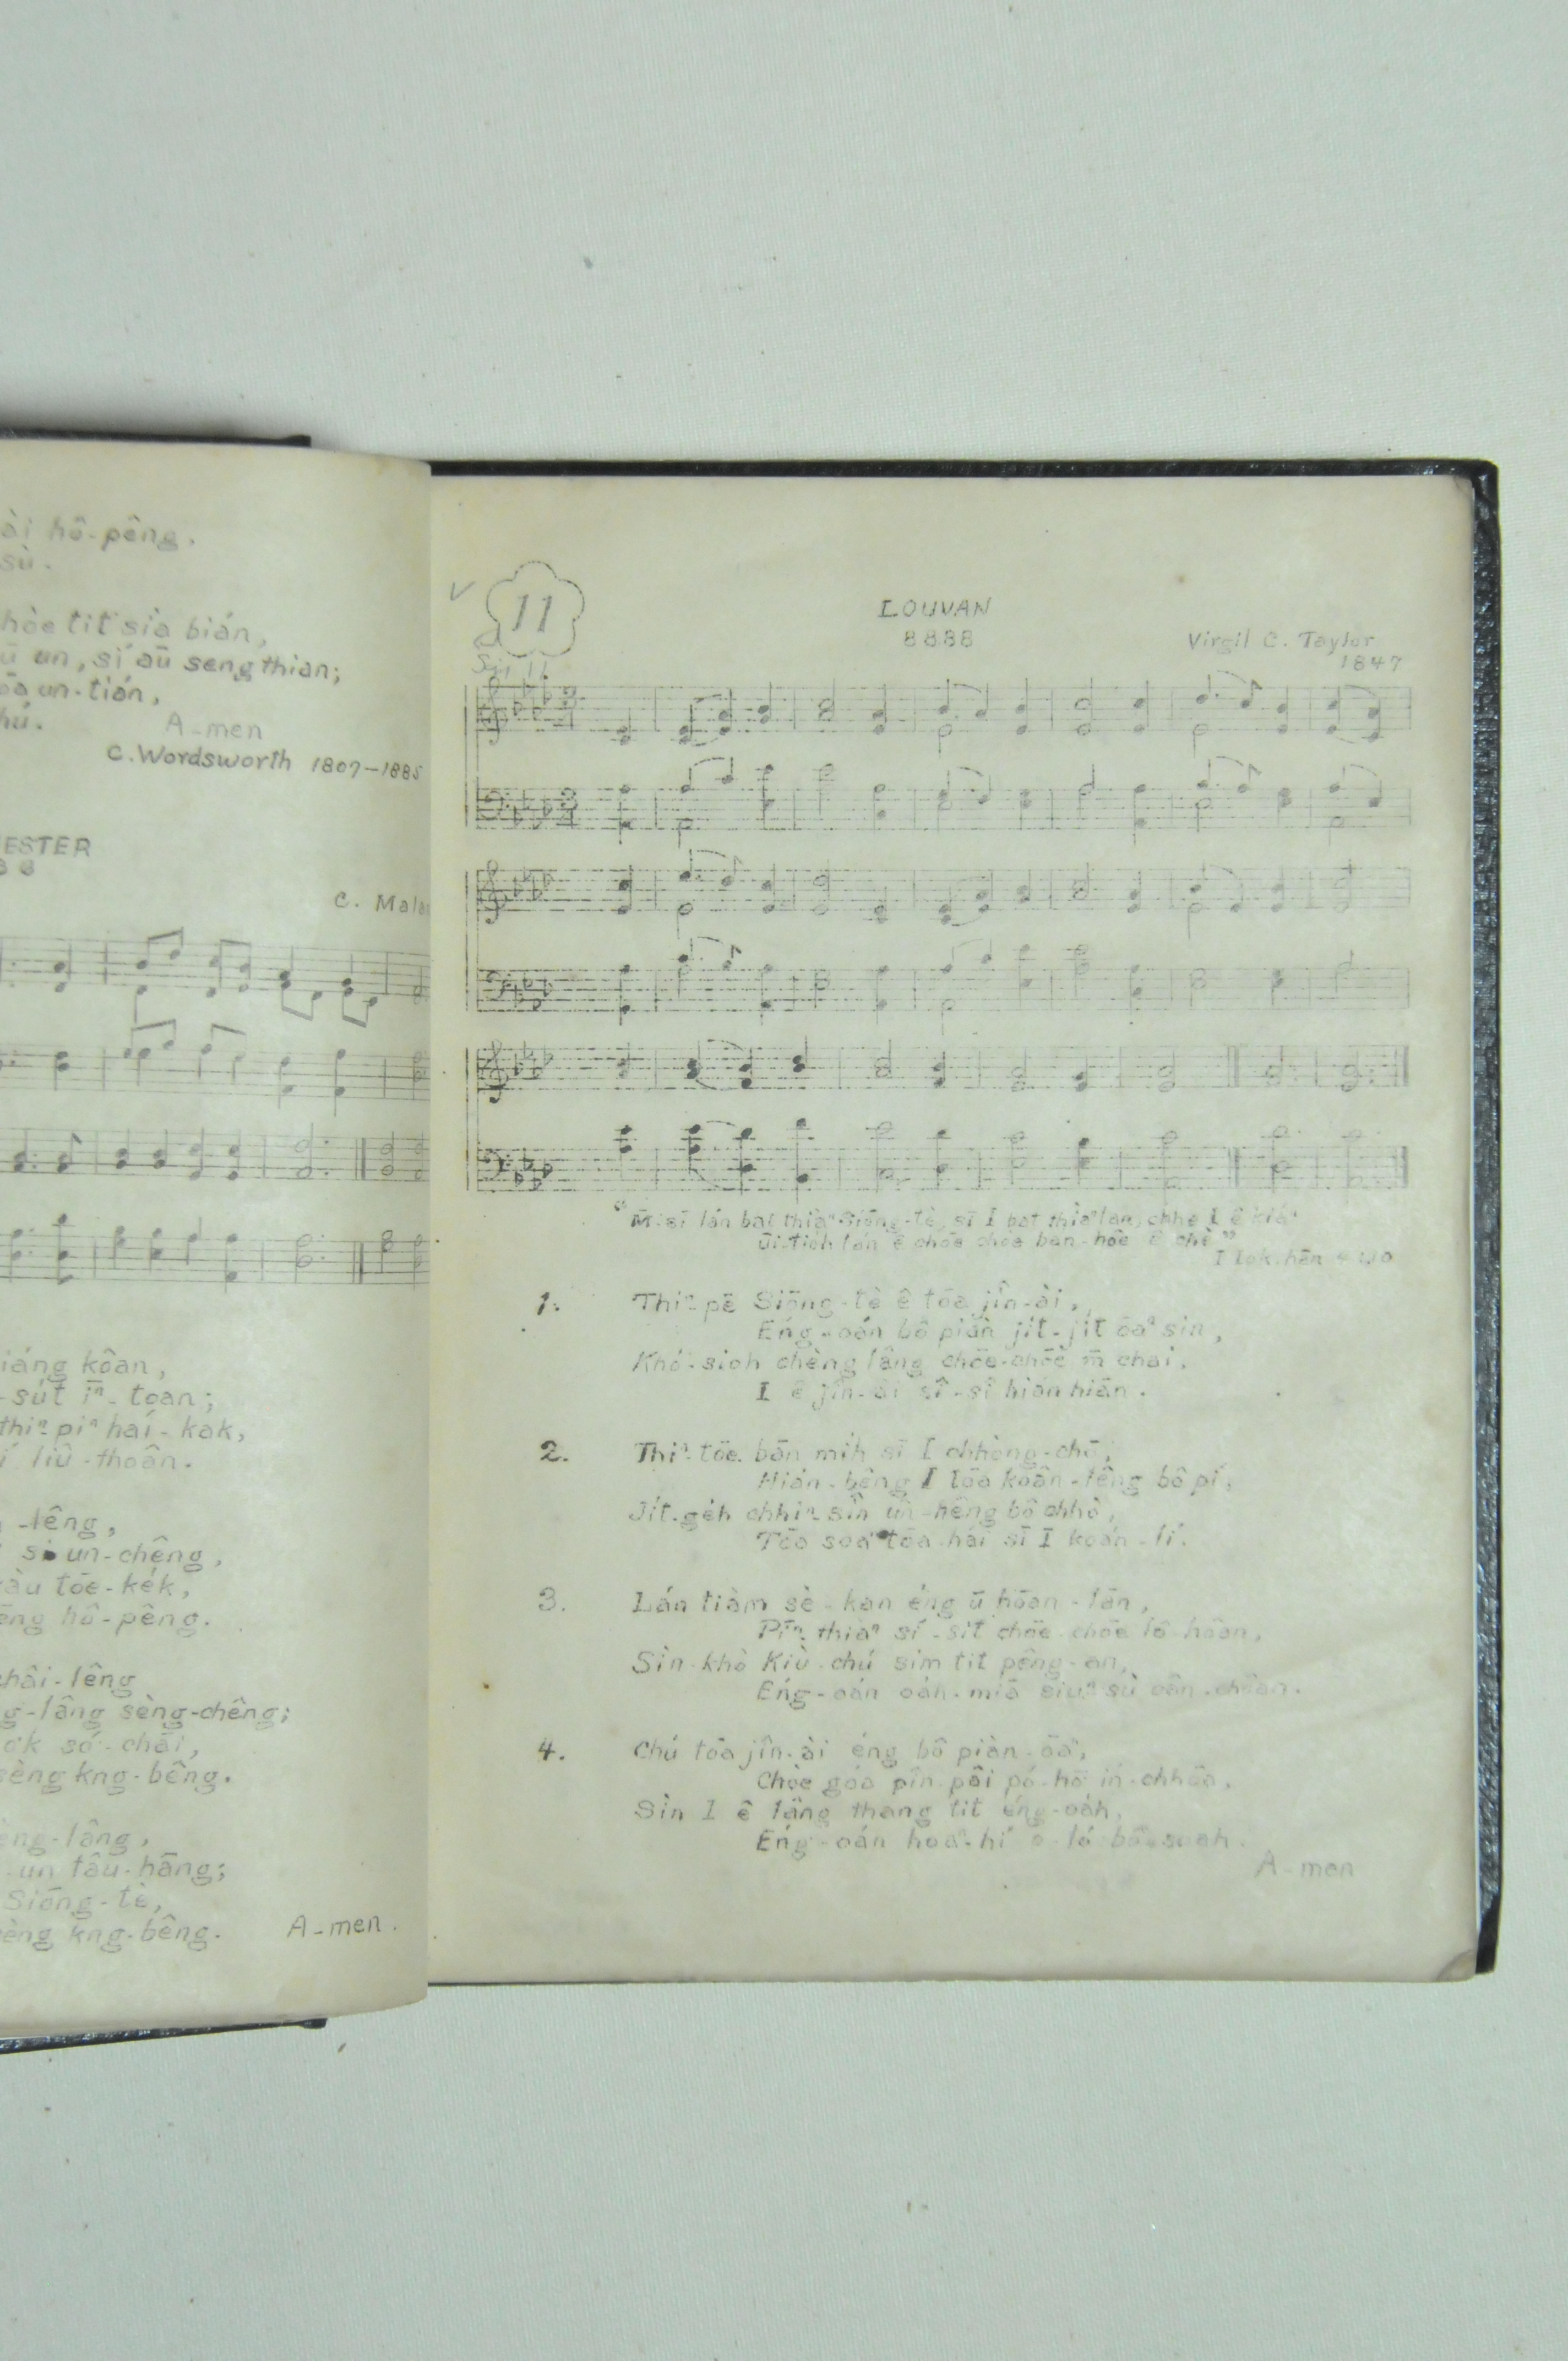 ài hô-pêng.
sù.
hòe tit sìa bián,
ū un, sí aū seng thian;
un-tián,
hú.
A-men
C. Wordsworth 1807–1885
ESTER
C. Mala
iáng kôan,
-sút īⁿ-toan;
thiⁿ-piⁿ haí-kak,
liû-thoân.
-lêng,
un-chêng,
àu tōe-kék,
hô-pêng.
châi-lêng
g-lâng sèng-chêng;
ok só-chāi,
èng kng-bêng.
èng-lâng,
-un tâu-hāng;
Siōng-tè,
èng kng-bêng.
A-men.
11
LOUVAN
8888
Virgil C. Taylor
1847
"M̄-sī lán bat thiàⁿ Siōng-tè, sī I bat thiàⁿ lán, chhe I ê kiáⁿ
ūi-tio̍h lán ê chōe chòe bán-hôe ê chè"
1. Thiⁿ-pē Siōng-tè ê tōa jîn-ài,
Éng-oán bô piàn jit-jit ōaⁿ sin,
Khó-sioh chèng lâng chōe-chōe m̄ chai,
I ê jîn-ài sî-sî hián hiān.
2. Thiⁿ-tōe bān mih sī I chhòng-chō,
Hián-bêng I tōa koân-lêng bô pí,
Jit-geh chhiⁿ-sîn ūn-hêng bô chhò,
Tōa soaⁿ tōa hái sī I koán-lí.
3. Lán tiàm sè-kan éng ū hōan-lān,
Pīⁿ-thiàⁿ sí-sit chōe-chōe lô-hôan,
Sìn-khò Kiù-chú sim tit pêng-an,
Éng-oán oáh-miā siúⁿ-sù oân-choân.
4. Chú tōa jîn-ài éng bô piàn-ōaⁿ,
Chòe góa pîn-pôi pó-hō ín-chhōa,
Sìn I ê lâng thang tit éng-oáh,
Éng-oán hoaⁿ-hí o-ló bô soah.
A-men